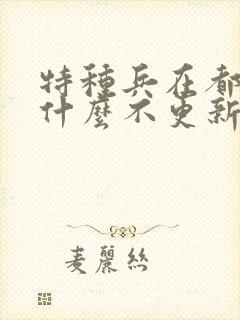 特種兵在都
什麼不更新
麦麗絲